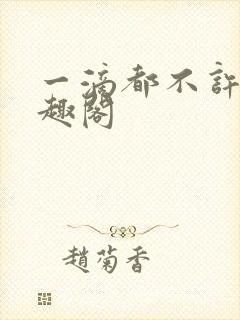 一滴都不許
趣閣
趙菊香